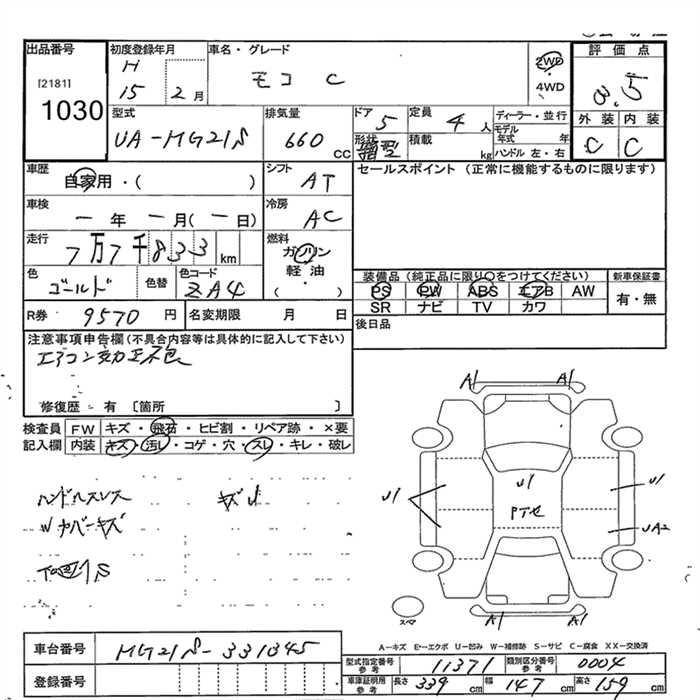 出品番号
[2181]
1030
初度登録年月
H
15 2月
車名・グレード
モコ C
2WD
・
4WD
評価点
3.5
外装 内装
C C
型式
UA-MG21S
排気量
660 CC
ドア
5
形状
箱型
定員
4 人
積載
kg
ディーラー・並行
モデル年式 年
ハンドル 左・右
車歴
自家用・( )
シフト
AT
車検
一年 一月(一日)
冷房
AC
走行
7万7千833 km
燃料
ガソリン
軽油
・
( )
色
ゴールド
色替
色コード
ZA4
R券 9570 円
名変期限 月 日
セールスポイント (正常に機能するものに限ります)
装備品(純正品に限り○をつけてください)
PS PW ABS エアB AW
SR ナビ TV カワ
新車保証書
有・無
後日品
注意事項申告欄(不具合内容等は具体的に記入して下さい)
修復歴・有〔箇所 〕
検査員記入欄
FW キズ・飛石・ヒビ割・リペア跡・×要
内装 キズ・汚レ・コゲ・穴・スレ・キレ・破レ
ハンドルスレス
キズU
Wカバーキズ
下回りS
A1 A1
U1
U1
U1
PTセ
UA2
スペア
A1 A1
A-キズ E-エクボ U-凹み W-補修跡 S-サビ C-腐食 XX-交換済
車台番号 MG21S-331345
登録番号
型式指定番号 参考 11371
類別区分番号 参考 0004
車庫証明用 参考 長さ 339 cm 幅 147 cm 高さ 159 cm